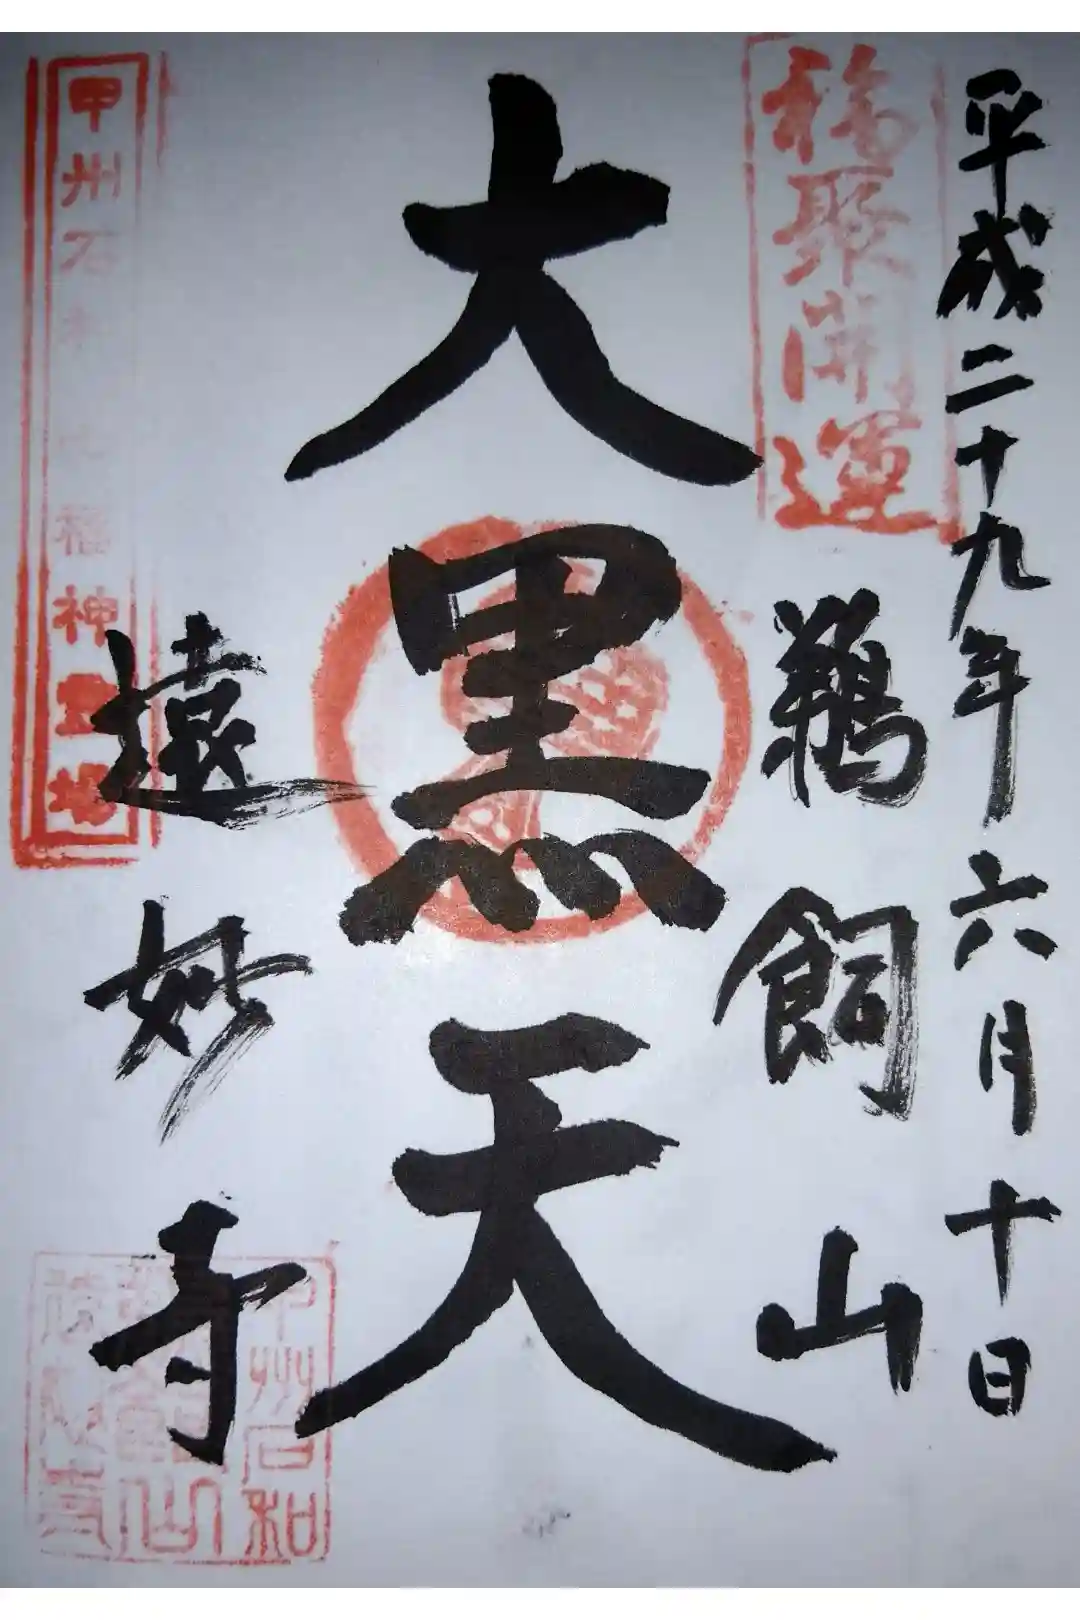 平成二十九年六月十日
福聚開運
鵜飼山
大黒天
遠妙寺
甲州石和七福神霊場
甲州石和
鵜飼山
遠妙寺